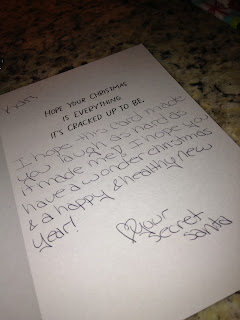 HOPE YOUR CHRISTMAS
IS EVERYTHING
IT'S CRACKED UP TO BE.
I hope this card made
you laugh as hard as
it made me!! I hope you
have a wonder christmas
& a happy & healthy new
year!
♡ your
secret
santa